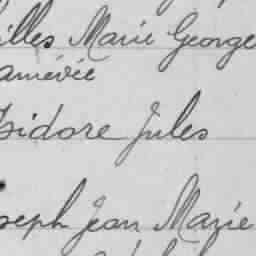 illes Marie George
amévée
Isidore Jules
oseph Jean Marie